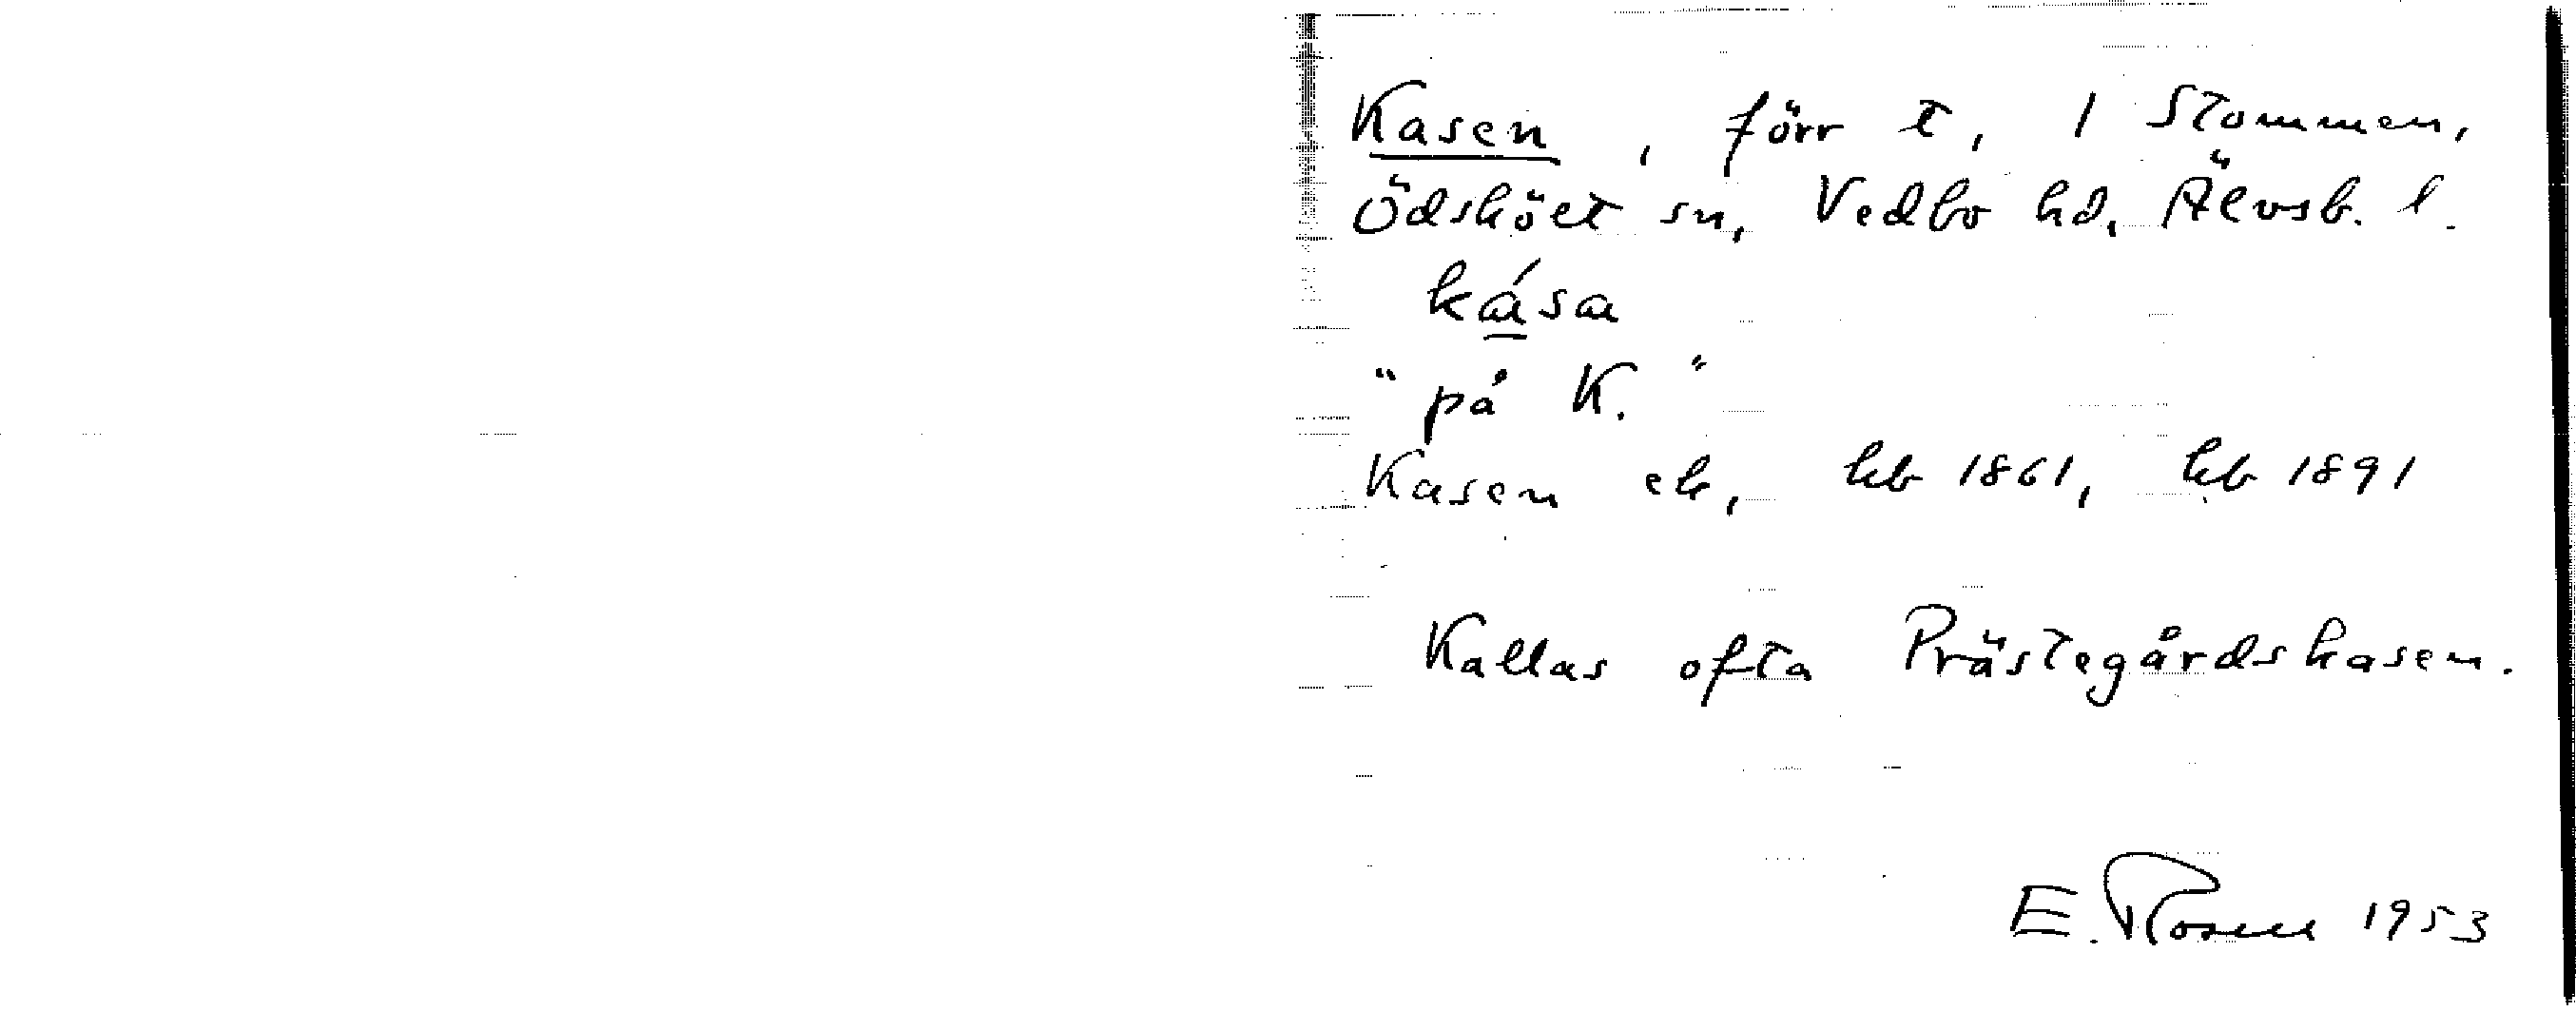 Kasen, förr t, 1 Stommen,
Ödskölt sn, Vedbo hd, Älvsb. l.
kása
"på K."
Kasen ek, kb 1861, kb 1891
Kallas ofta Prästegårdskasen.
E. Rosell 1953